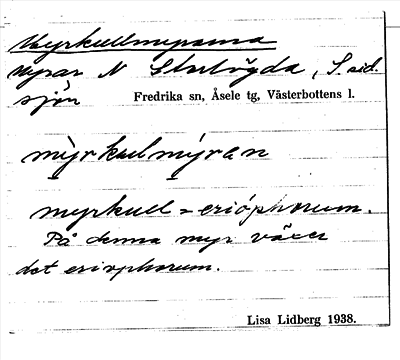 Myrkullmyrarna
myrar N Storhögda, S. sid.
sjön Fredrika sn, Åsele tg, Västerbottens l.
mỳrkulmýran
myrkull = erióphorum.
På denna myr växer
det eriophorum.
Lisa Lidberg 1938.